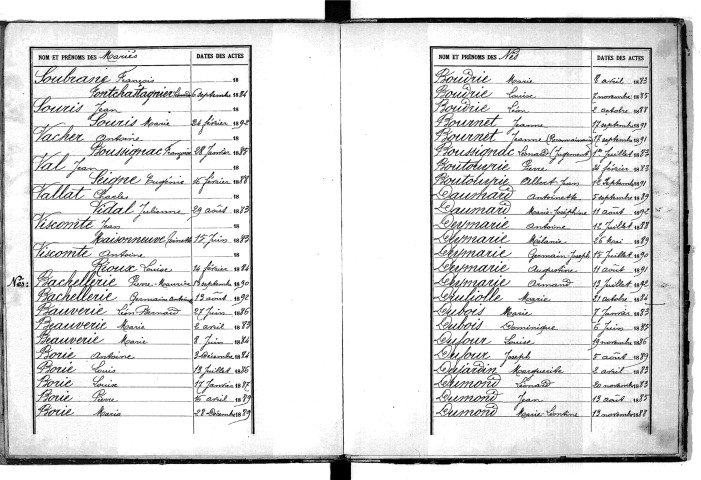 NOM ET PRÉNOMS DES Mariés DATES DES ACTES
Soubrane François 18
Fontchastagnier 6 septembre 1884
Souris Jean 18
Souris Marie 24 février 1892
Vacher Antoine 18
Boussignac Françoise 28 Janvier 1885
Val Jean 18
Seigne Eugénie 16 février 1888
Vallat Charles 18
Vidal Julienne 29 août 1883
Viscomte Jean 18
Maisonneuve 15 Juin 1883
Viscomte Antoine 18
Rioux Louise 14 février 1884
Nés:
Bachellerie Pierre Maurice 19 septembre 1890
Bachellerie Germain Antoine 13 août 1892
Bauverie Léon Bernard 27 Juin 1886
Beauverie Marie 2 avril 1883
Beauverie Marie 8 Juin 1884
Borie Antoine 3 décembre 1884
Borie Louis 13 Juillet 1886
Borie Louise 17 Janvier 1887
Borie Pierre 15 avril 1889
Borie Maria 28 Décembre 1889
NOM ET PRÉNOMS DES Nés DATES DES ACTES
Boudrie Marie 8 avril 1883
Boudrie Louise 7 novembre 1885
Boudrie Léon 2 octobre 1888
Bournet Jeanne 17 septembre 1891
Bournet Jeanne 17 septembre 1891
Boussignac Léonard (Jugement) 1er Juillet 1883
Boutouyrie Pierre 24 février 1883
Boutouyrie Albert Jean 12 septembre 1891
Daumard Antoinette 5 septembre 1889
Daumard Marie Joséphine 11 août 1892
Deymarie Antoine 12 Juillet 1888
Deymarie Mélanie 26 Mai 1889
Deymarie Germain Joseph 15 Juillet 1890
Deymarie Augustine 11 août 1891
Deymarie Armand 13 Juillet 1892
Marie 21 octobre 1884
Dubois Marie 7 Janvier 1883
Dubois Dominique 6 Juin 1885
Dufour Louise 19 novembre 1886
Dufour Joseph 5 août 1889
Dujardin Marguerite 2 avril 1883
Dumond Léonard 20 novembre 1883
Dumond Jean 13 août 1885
Dumond Marie Léontine 13 novembre 1888